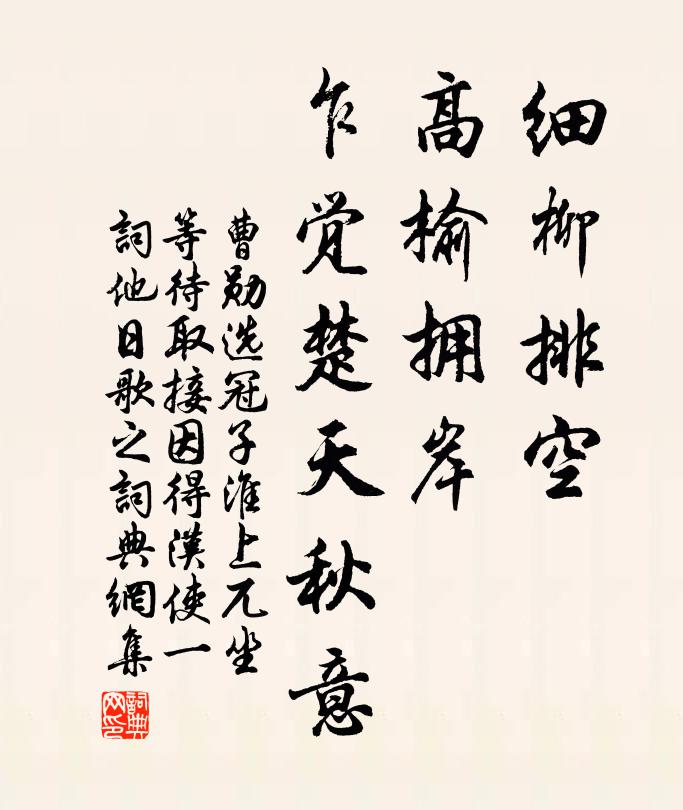 细柳排空
高榆拥岸
乍觉楚天秋意
曹勋选冠子淮上兀坐
等待取接因得漢使一
詞他日歌之詞典網集
詞典网印